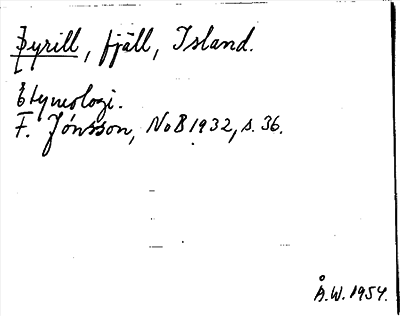 Þyrill, fjäll, Island.
Etymologi.
F. Jónsson, NoB 1932, s. 36.
Å.W. 1954.